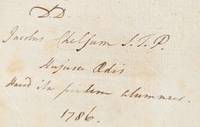 DD
Jacobus Chelsum S.T.P.
Hujusce Ædis
Haud ita pridem alumnus.
1786.